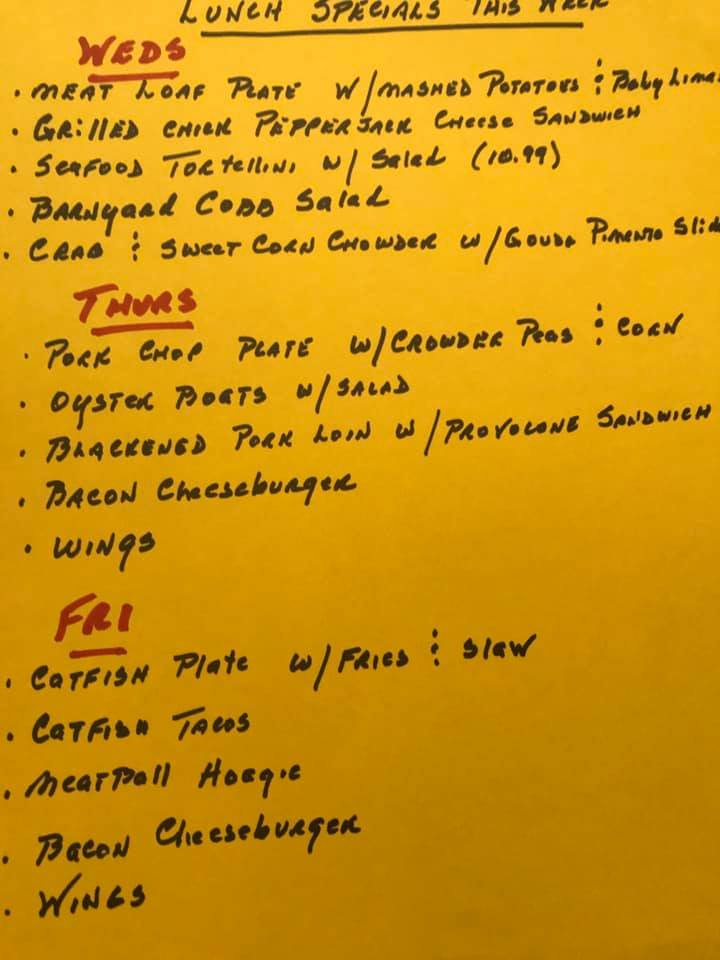 LUNCH SPECIALS THIS WEEK
WEDS
• MEAT LOAF PLATE W/MASHED POTATOES & Baby Limas
• GRILLED CHICK PEPPERJACK CHEESE SANDWICH
• SEAFOOD TORTELLINI W/ Salad (10.99)
• BARNyard COBB Salad
• CRAB & SWEET CORN CHOWDER W/GOUDA PIMENTO Slid
THURS
• PORK CHOP PLATE W/CROWDER PEAS & CORN
• OYSTER BOATS W/SALAD
• BLACKENED PORK LOIN W/PROVOLONE SANDWICH
• BACON CHeeseburgeR
• WINGS
FRI
• CATFISH Plate W/FRIES & SlaW
• CATFISH TACOS
• MEATBall HOAgie
• BACON CheeseburgeR
• WINGS